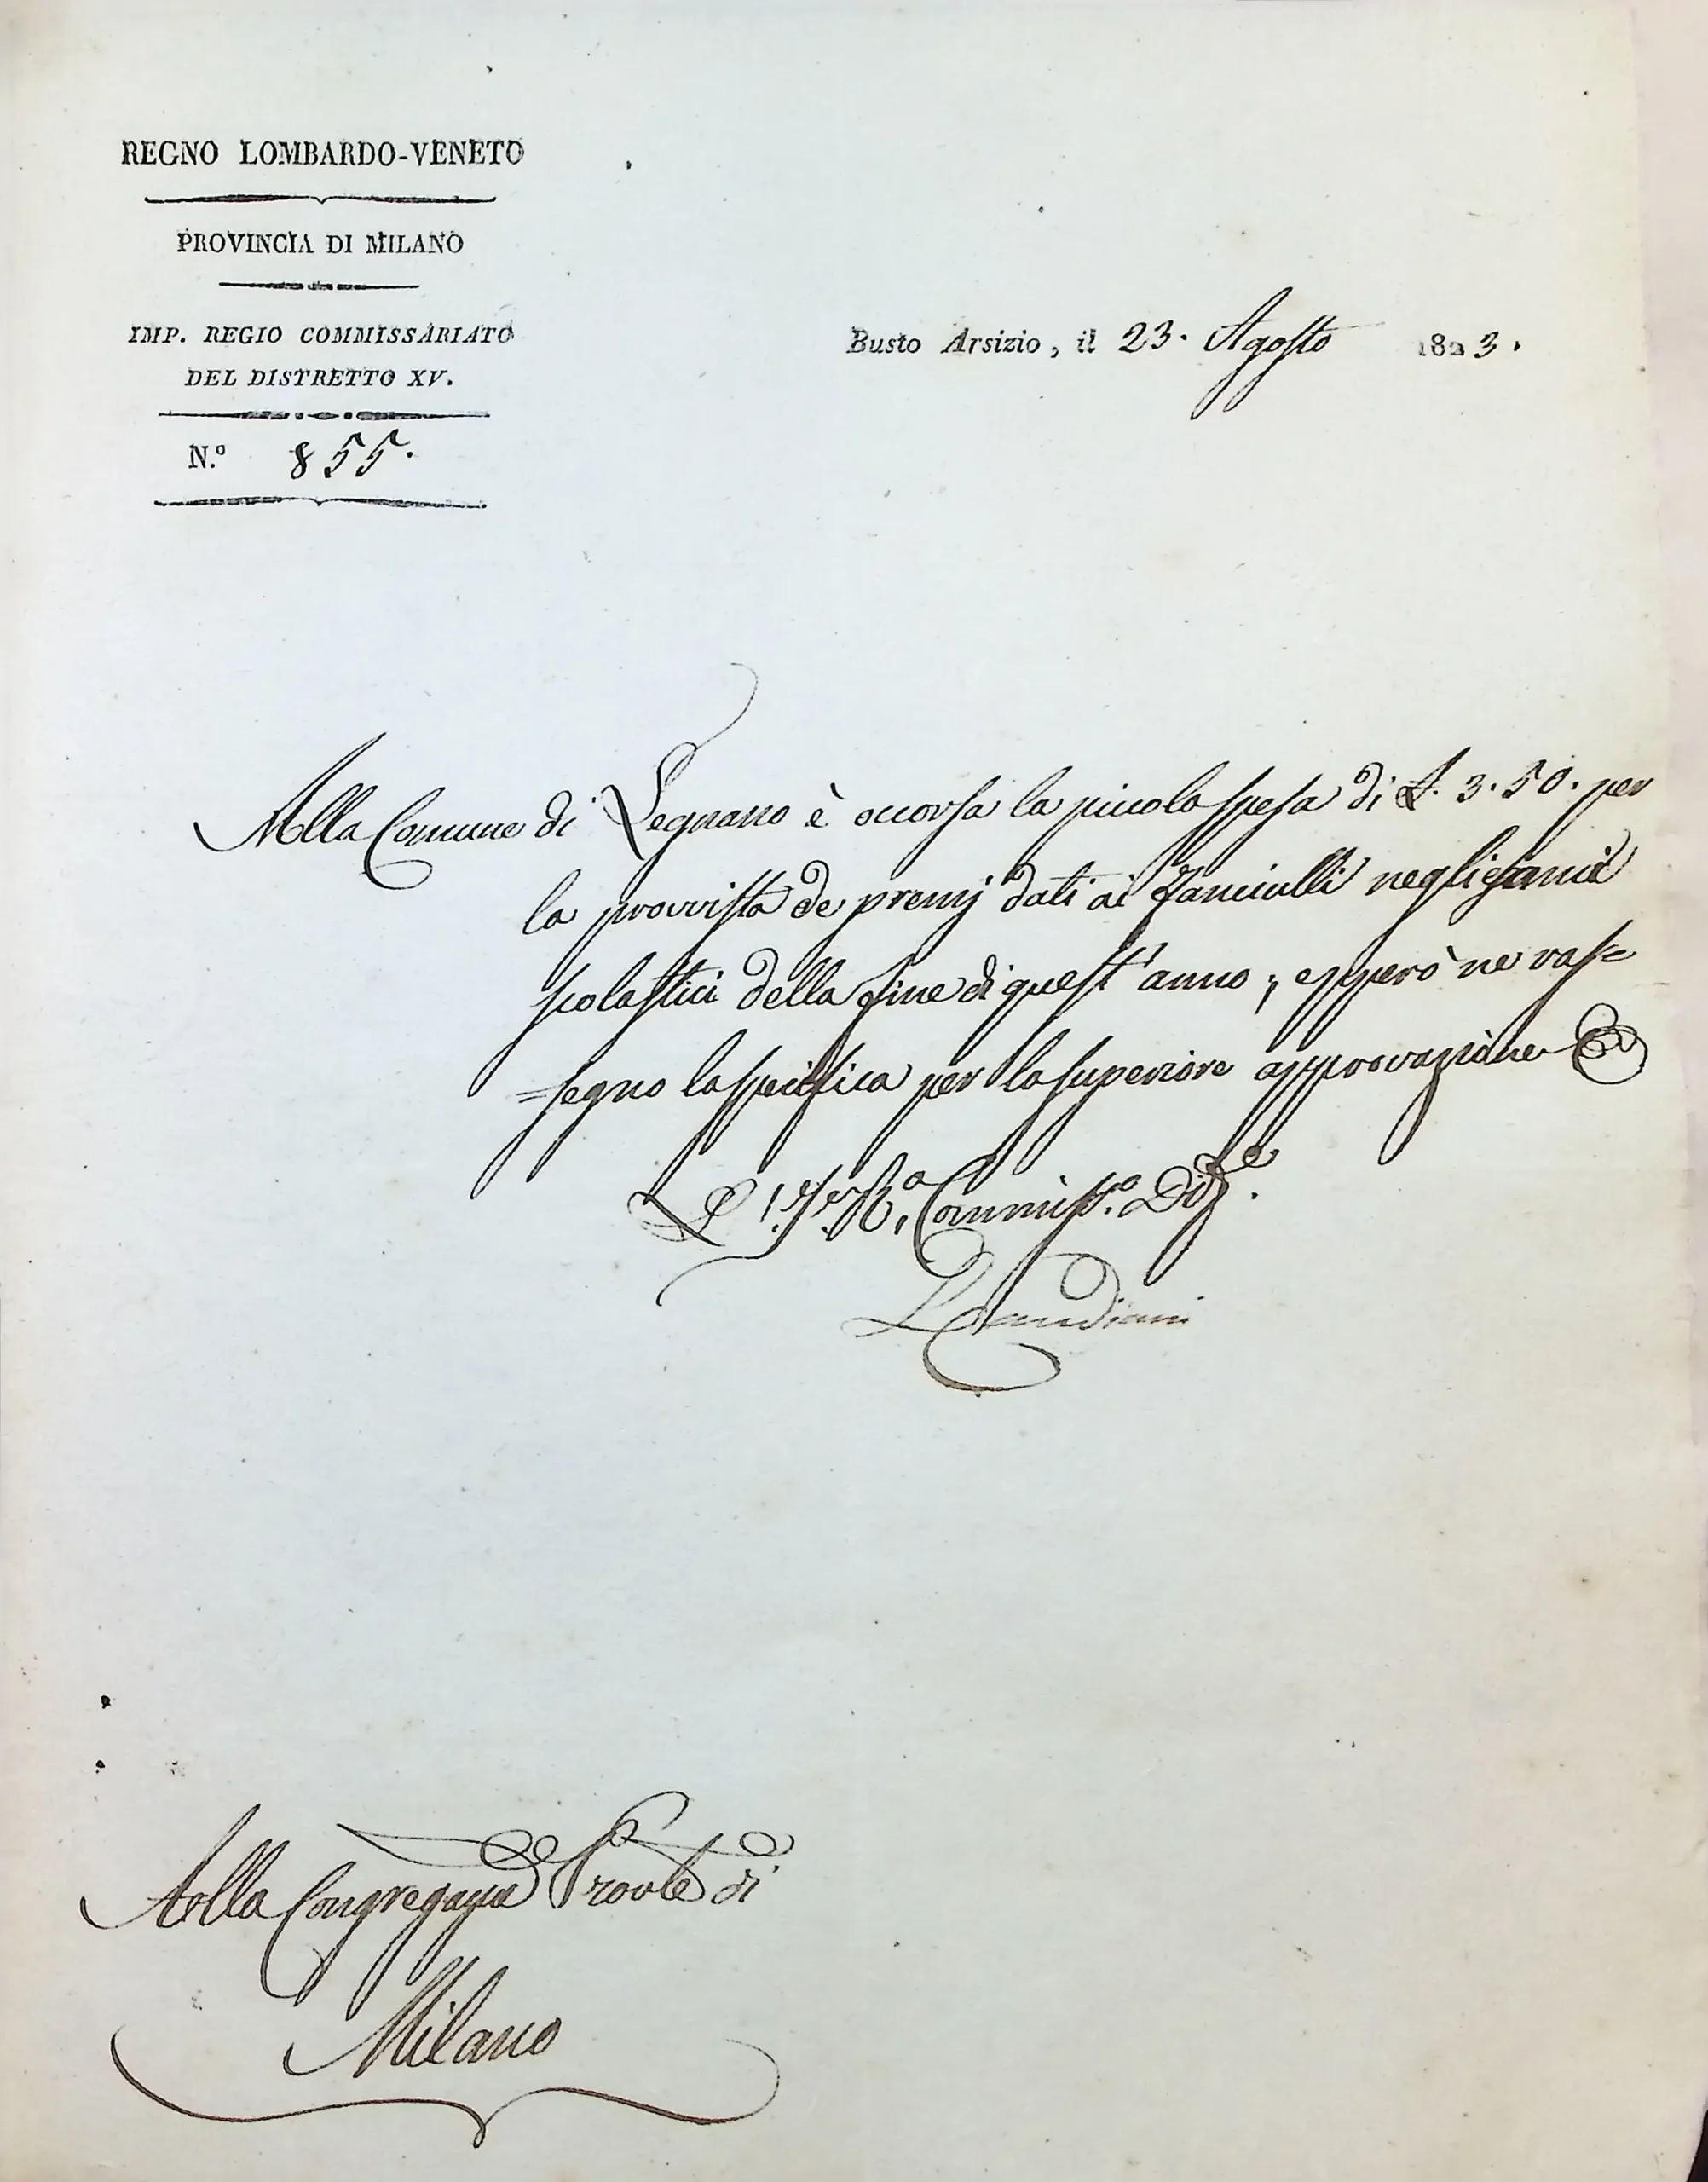 REGNO LOMBARDO-VENETO
PROVINCIA DI MILANO
IMP. REGIO COMMISSARIATO
DEL DISTRETTO XV.
N.º 855.
Busto Arsizio, il 23. Agosto 1823.
Alla Comune di Legnano è occorsa la piccola spesa di £. 3.50. per
la provvista de premj dati ai Fanciulli negli esami
scolastici della fine di quest'anno, epperò ne ras=
=segno la specifica per la superiore approvazione
L'I. R.º Commiss.º Dis.e
Alla Congregazne Provle di
Milano